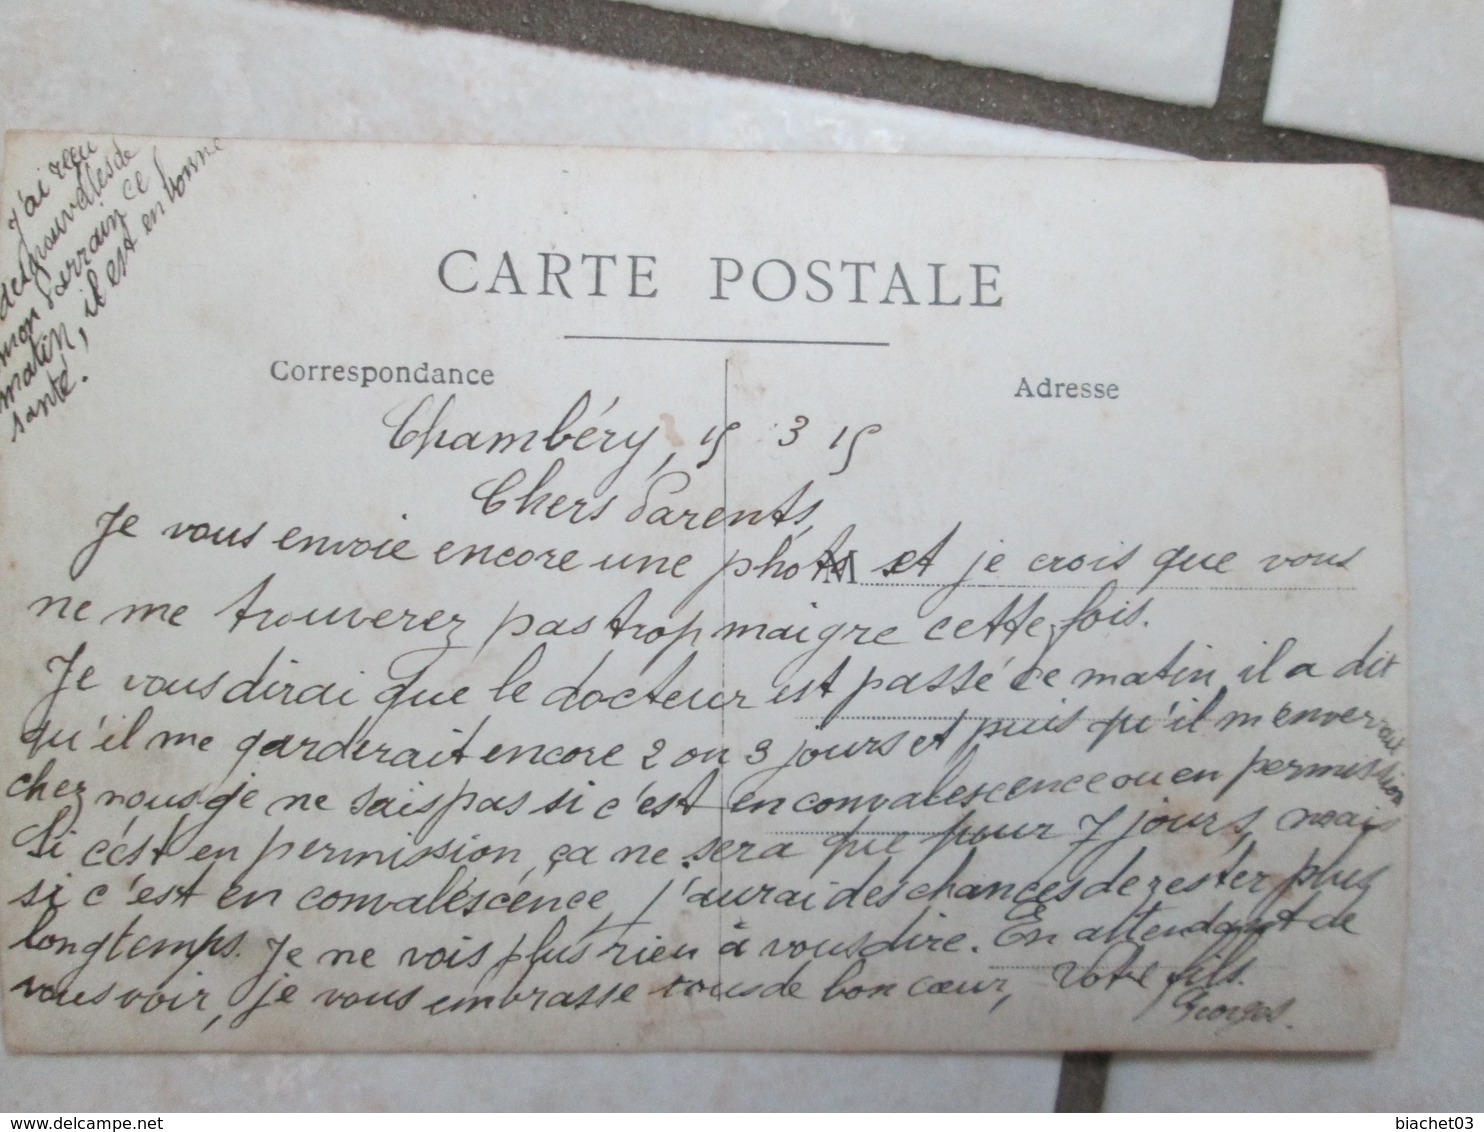 J'ai reçu
des nouvelles de
mon Parrain ce
matin, il est en bonne
santé.
CARTE POSTALE
Correspondance
Adresse
Chambéry, 15 3 15
Chers Parents,
M
Je vous envoie encore une photo et je crois que vous
ne me trouverez pas trop maigre cette fois.
Je vous dirai que le docteur est passé ce matin, il a dit
qu'il me garderait encore 2 ou 3 jours et puis qu'il m'enverrait
chez nous, je ne sais pas si c'est en convalescence ou en permission
Si c'est en permission, ça ne sera que pour 7 jours, mais
si c'est en convaléscence, j'aurai des chances de rester plus
longtemps. Je ne vois plus rien à vous dire. En attendant de
vous voir, je vous embrasse tous de bon cœur, Votre fils.
Georges.
www.delcampe.net
biachet03